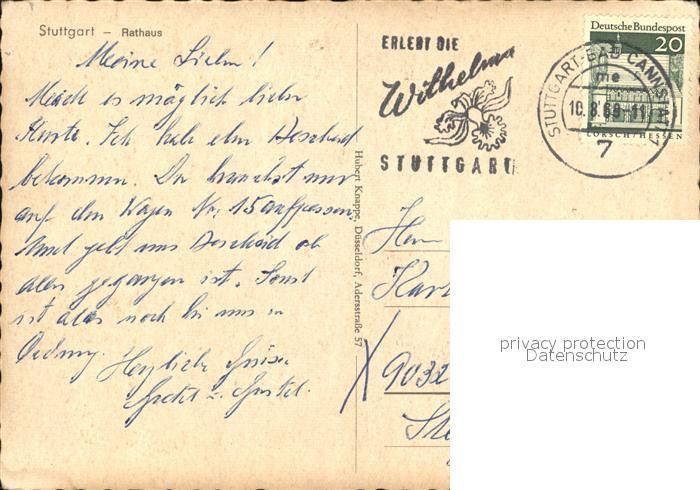 Stuttgart – Rathaus
Meine Lieben!
es möglich lieber
Ich habe den Bescheid
bekommen. Du brauchst nur
auf den Wagen Nr: 15 aufpassen
und gebt uns Bescheid ob
alles gegangen ist. Sonst
ist alles noch bei uns in
Ordnung.
Herzliche Grüsse
Hubert Knappe, Düsseldorf, Adersstraße 57
ERLEBT DIE
Wilhelma
STUTTGART
Deutsche Bundespost
20
LORSCH/HESSEN
STUTTGART-BAD CANNSTATT 1
me
10.8.69-11
7
Karl
9032
privacy protection
Datenschutz